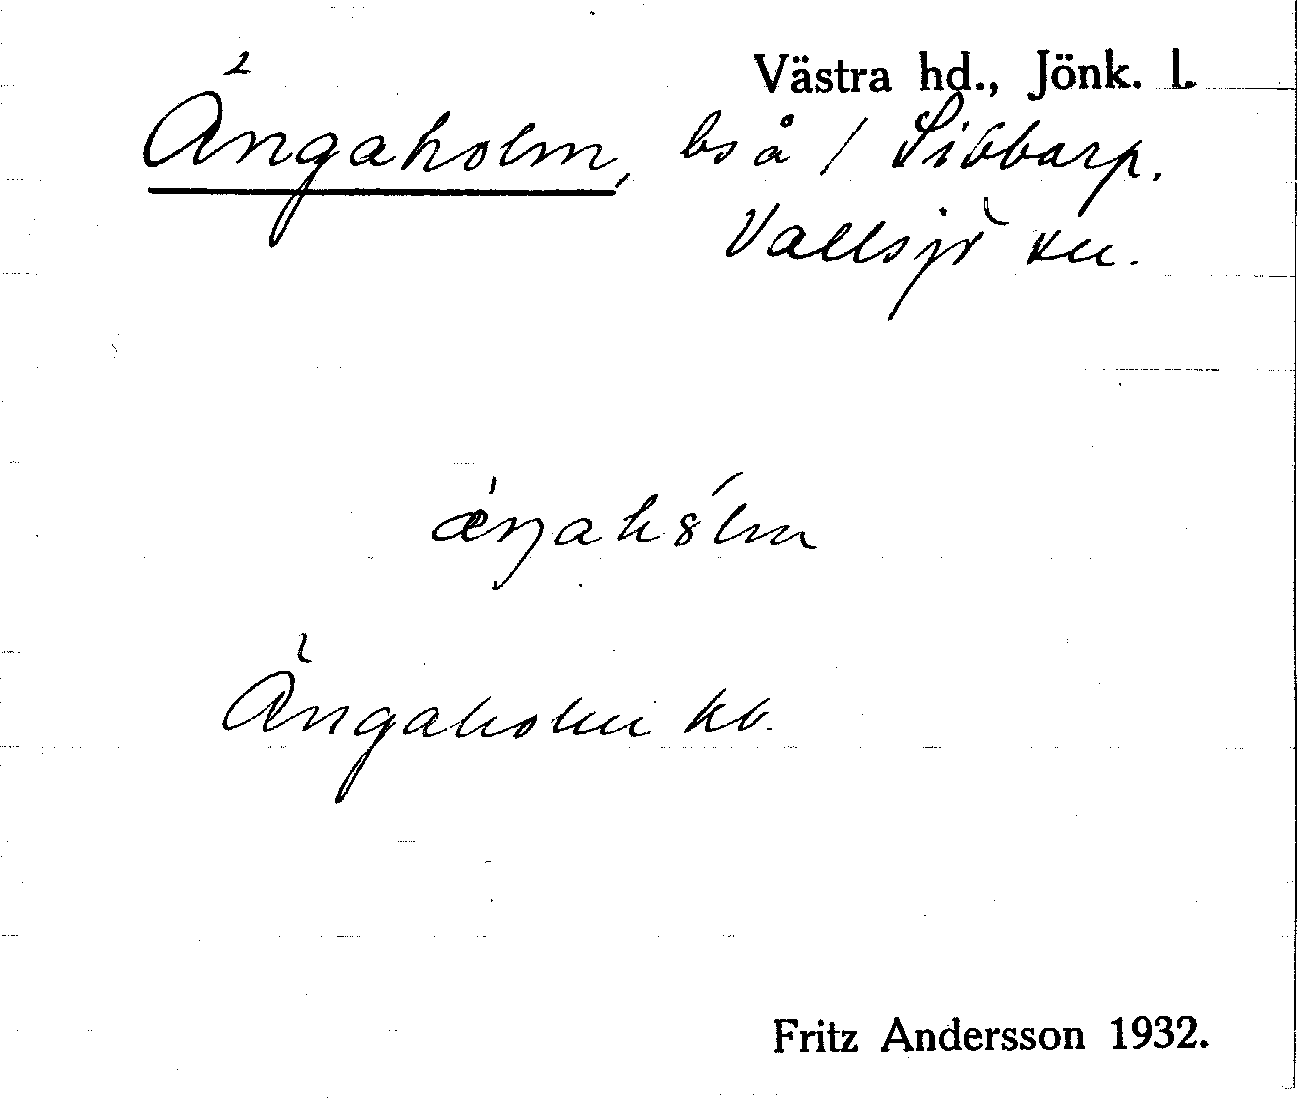 Västra hd., Jönk. l.
Ängaholm, bs å / Sibbarp.
Vallsjö sn.
ængahólm
Ängaholm kb.
Fritz Andersson 1932.